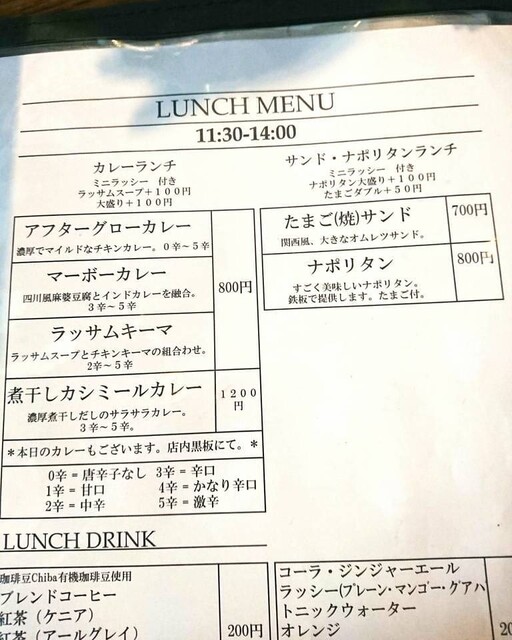 LUNCH MENU
11:30-14:00
カレーランチ
ミニラッシー 付き
ラッサムスープ+100円
大盛り+100円
アフターグローカレー
濃厚でマイルドなチキンカレー。0辛~5辛
マーボーカレー
四川風麻婆豆腐とインドカレーを融合。
3辛~5辛
ラッサムキーマ
ラッサムスープとチキンキーマの組合わせ。
2辛~5辛
800円
煮干しカシミールカレー
濃厚煮干しだしのサラサラカレー。
3辛~5辛。
1200
円
*本日のカレーもございます。店内黒板にて。*
0辛=唐辛子なし 3辛=辛口
1辛=甘口 4辛=かなり辛口
2辛=中辛 5辛=激辛
サンド・ナポリタンランチ
ミニラッシー 付き
ナポリタン大盛り+100円
たまごダブル+50円
たまご(焼)サンド
関西風、大きなオムレツサンド。
700円
ナポリタン
すごく美味しいナポリタン。
鉄板で提供します。たまご付。
800円
LUNCH DRINK
珈琲豆Chiba有機珈琲豆使用
ブレンドコーヒー
紅茶(ケニア)
紅茶(アールグレイ)
200円
コーラ・ジンジャーエール
ラッシー(プレーン・マンゴー・グアハ
トニックウォーター
オレンジ
20